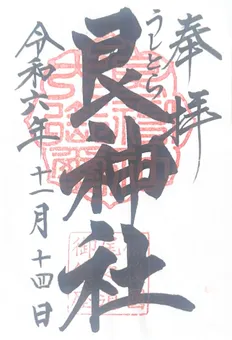 奉拝
うしとら
艮神社
令和六年
十一月十四日